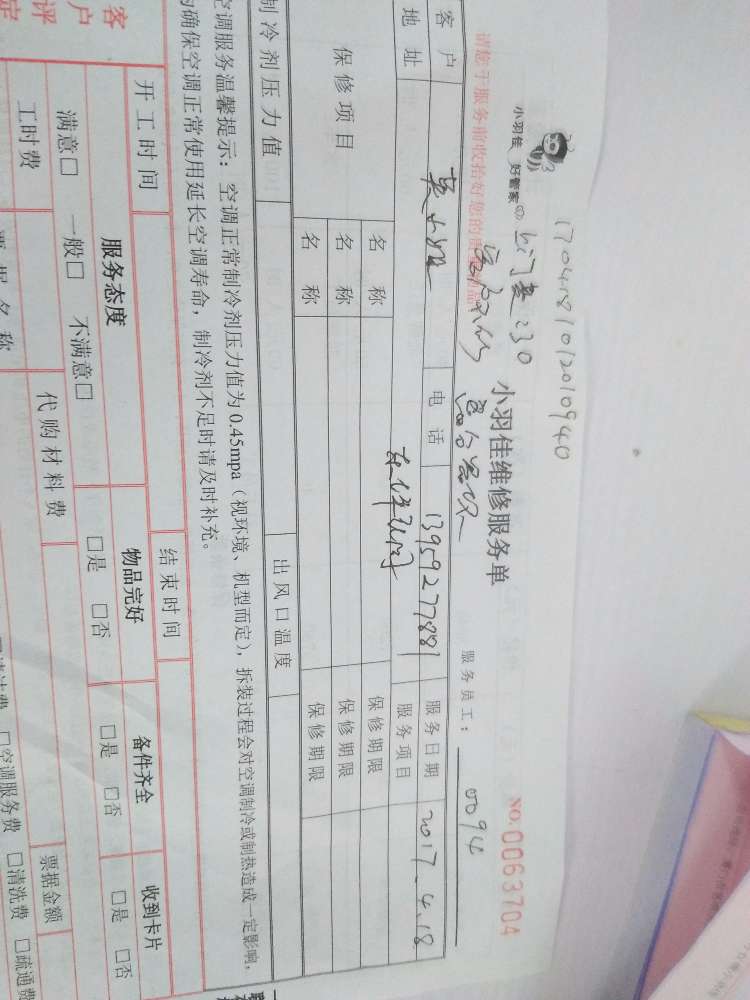 1704181012010940
小羽佳 好管家
小羽佳维修服务单
NO.0063704
请您于服务前收拾好您的
服务员工： 0094
客户 电话 13959277881 服务日期 2017.4.18
地址 服务项目
保修项目 名称 保修期限
名称 保修期限
名称 保修期限
制冷剂压力值 出风口温度
空调服务温馨提示：空调正常制冷剂压力值为0.45mpa（视环境、机型而定），拆装过程会对空调制冷或制热造成一定影响，
为确保空调正常使用延长空调寿命，制冷剂不足时请及时补充。
开工时间 结束时间
客户评定 服务态度 物品完好 备件齐全 收到卡片
满意□ 一般□ 不满意□ □是 □否 □是 □否 □是 □否
工时费 代购材料费 票据金额
票据名称 □空调服务费 □清洗费 □疏通费